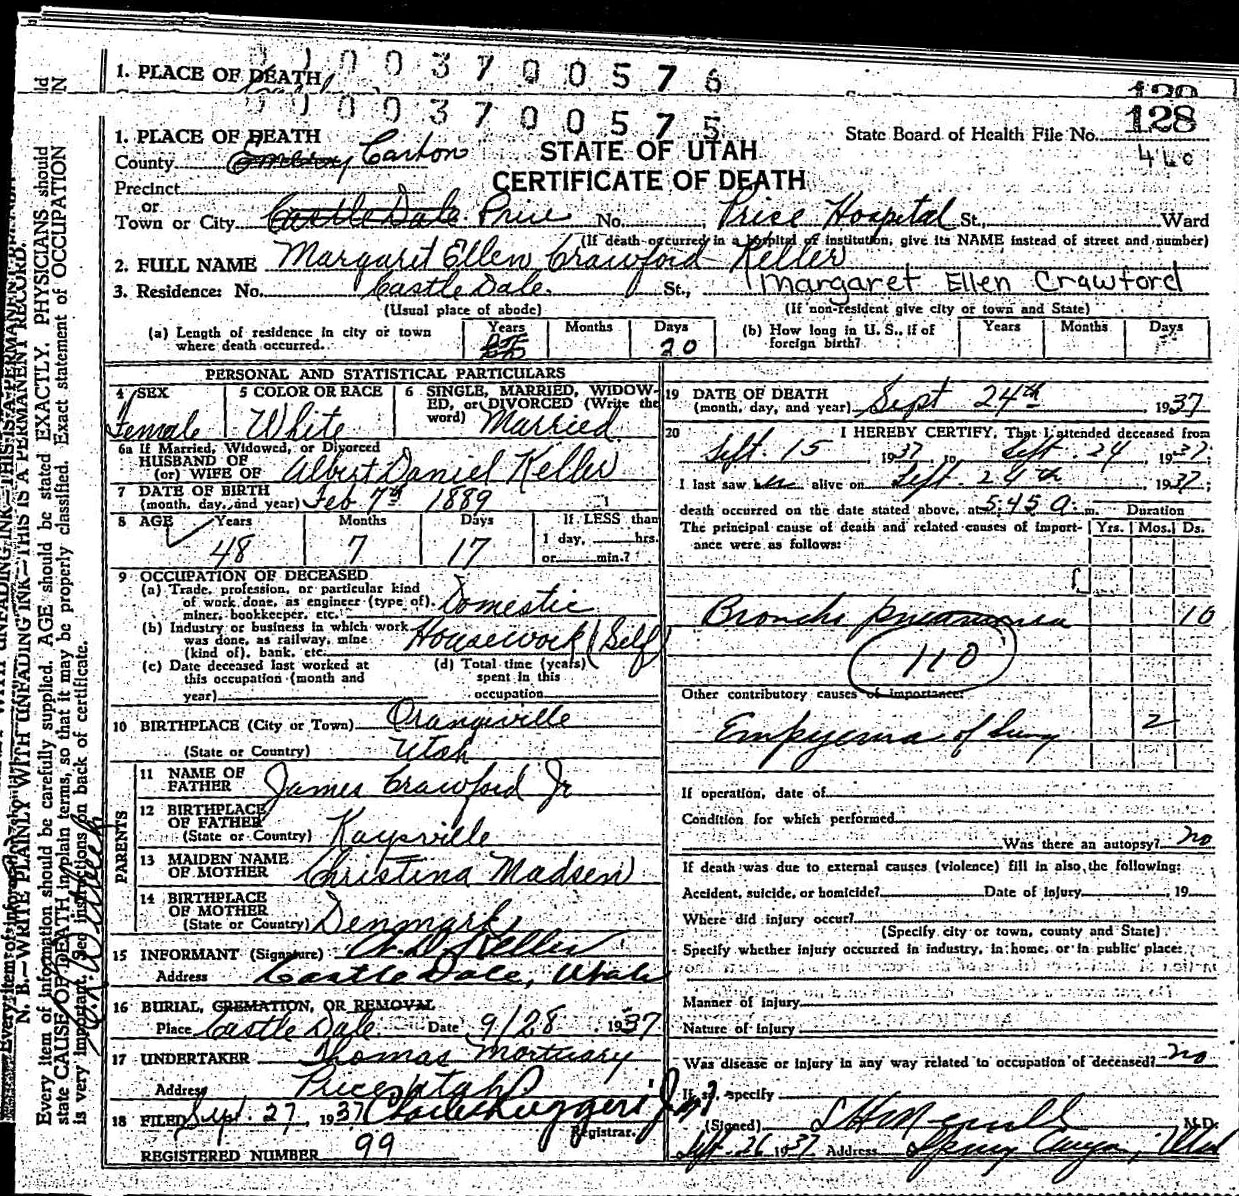 0 1 0 0 3 7 0 0 5 7 6
1. PLACE OF DEATH
129
0 0 0 0 3 7 0 0 5 7 5
1. PLACE OF DEATH
State Board of Health File No. 128
460
County Emery Carbon
STATE OF UTAH
CERTIFICATE OF DEATH
Precinct
or
Town or City Castle Dale Price No. Price Hospital St., Ward
(If death occurred in a hospital or institution, give its NAME instead of street and number)
2. FULL NAME Margaret Ellen Crawford Keller
3. Residence: No. Castle Dale St., Margaret Ellen Crawford
(Usual place of abode) (If non-resident give city or town and State)
(a) Length of residence in city or town where death occurred. Years Months Days 20
(b) How long in U. S., if of foreign birth? Years Months Days
PERSONAL AND STATISTICAL PARTICULARS
4 SEX Female
5 COLOR OR RACE White
6 SINGLE, MARRIED, WIDOWED, or DIVORCED (Write the word) Married
6a If Married, Widowed, or Divorced
HUSBAND OF
(or) WIFE OF Albert Daniel Keller
7 DATE OF BIRTH
(month, day, and year) Feb 7th 1889
8 AGE Years Months Days If LESS than
48 7 17 1 day, hrs.
or min.?
9 OCCUPATION OF DECEASED
(a) Trade, profession, or particular kind
of work done, as engineer (type of), Domestic
miner, bookkeeper, etc.
(b) Industry or business in which work Housework (Self)
was done, as railway, mine
(kind of), bank, etc.
(c) Date deceased last worked at
this occupation (month and
year)
(d) Total time (years)
spent in this
occupation
10 BIRTHPLACE (City or Town) Orangeville
(State or Country) Utah
PARENTS
11 NAME OF
FATHER James Crawford Jr
12 BIRTHPLACE
OF FATHER
(State or Country) Kaysville
13 MAIDEN NAME
OF MOTHER Christina Madsen
14 BIRTHPLACE
OF MOTHER
(State or Country) Denmark
15 INFORMANT (Signature) A. D. Keller
Address Castle Dale, Utah
16 BURIAL, CREMATION, OR REMOVAL
Place Castle Dale Date 9/28 1937
17 UNDERTAKER Thomas Mortuary
Address Price, Utah
18 FILED Sept. 27, 1937
Registrar.
REGISTERED NUMBER 99
19 DATE OF DEATH
(month, day, and year) Sept 24th 1937
20 I HEREBY CERTIFY, That I attended deceased from
Sept. 15 1937 to Sept. 24 1937;
I last saw her alive on Sept. 24th 1937;
death occurred on the date stated above, at 5:45 a. m. Duration
The principal cause of death and related causes of importance were as follows: Yrs. Mos. Ds.
Broncho pneumonia 10
110
Other contributory causes of importance:
Empyema of lung 2
If operation, date of
Condition for which performed
Was there an autopsy? no
If death was due to external causes (violence) fill in also the following:
Accident, suicide, or homicide? Date of injury 19
Where did injury occur?
(Specify city or town, county and State)
Specify whether injury occurred in industry, in home, or in public place:
Manner of injury
Nature of injury
Was disease or injury in any way related to occupation of deceased? no
If so, specify
(Signed) M.D.
Sept. 26 1937 Address Utah
N. B.—WRITE PLAINLY WITH UNFADING INK—THIS IS A PERMANENT RECORD.
Every item of information should be carefully supplied. AGE should be stated EXACTLY. PHYSICIANS should
state CAUSE OF DEATH in plain terms, so that it may be properly classified. Exact statement of OCCUPATION
is very important. See instructions on back of certificate.